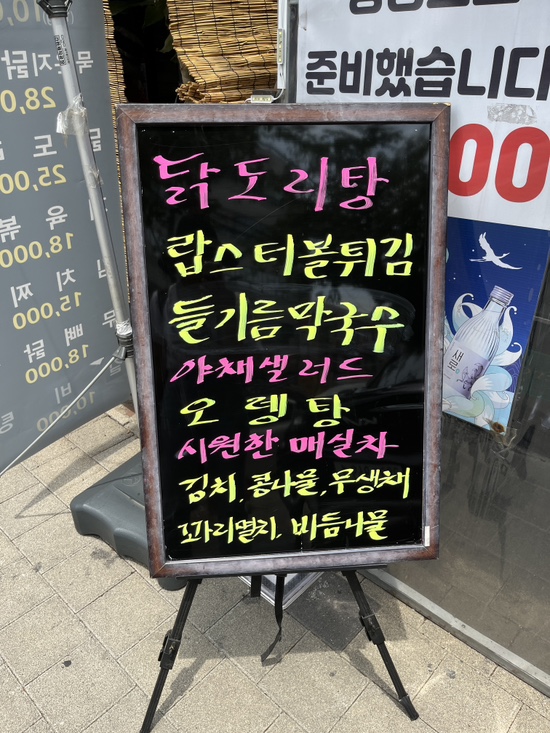 준비했습니다
00
닭도리탕
랍스터볼튀김
들기름막국수
야채샐러드
오뎅탕
시원한 매실차
김치, 콩나물, 무생채
꼬마리멸치, 비듬나물
28,000
25,000
18,000
15,000
18,000
10,000
새로